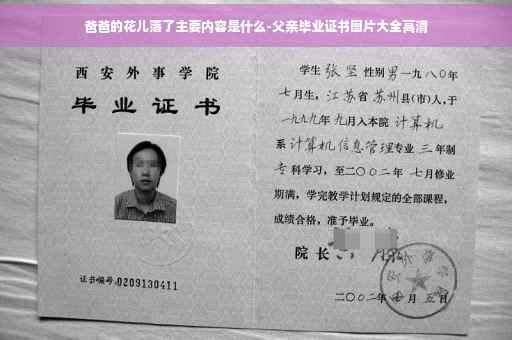 爸爸的花儿落了主要内容是什么-父亲毕业证书图片大全高清
西安外事学院
毕业证书
证书编号:0209130411
学生 张坚 性别 男 一九八〇年
七月生，江苏省苏州县(市)人，于
一九九九年九月入本院 计算机
系 计算机信息管理专业 三年制
专科学习，至二〇〇二年七月修业
期满，学完教学计划规定的全部课程，
成绩合格，准予毕业。
院长
二〇〇二年 月五日